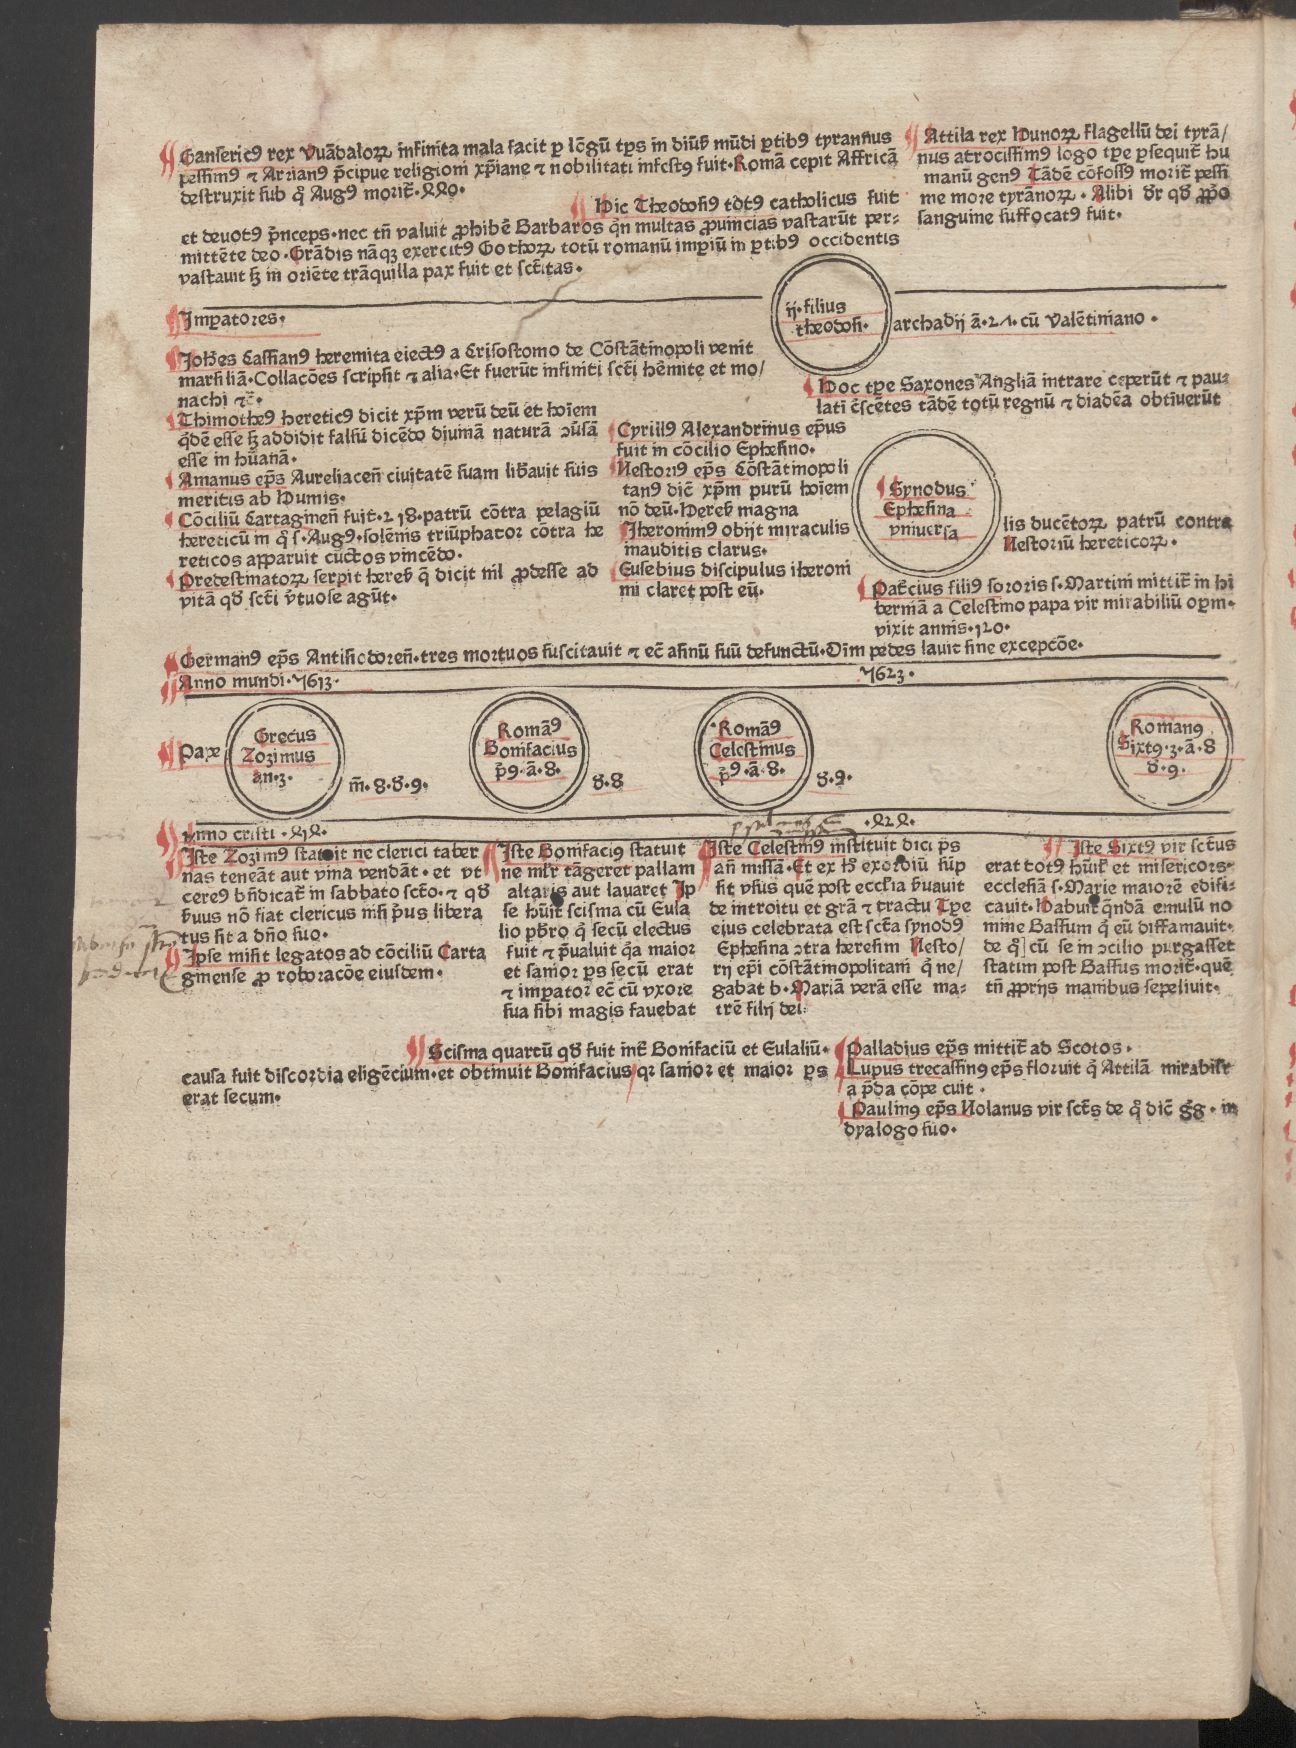 Ganseric9 rex Vuādaloꝝ infinita mala facit ꝑ lōgū tp̄s in diūſ mūdi ꝑtib9 tyrannus
peſſim9 ⁊ Arrian9 p̄cipue religioni xp̄iane ⁊ nobilitati infeſt9 fuit. Romā cepit Affricā
deſtruxit ſub q̊ Aug9 morit̄.440.
Attila rex Hunoꝝ flagellū dei tyrā/
nus atrociſſim9 lōgo tꝑe ꝑſequit̄ hu
manū gen9 Tādē cōfoſſ9 morit̄ peſſi
me more tyrānoꝝ. Alibi dr̄ qd̄ ꝓpͦo
ſanguine ſuffocat9 fuit.
Hic Theodoſi9 tot9 catholicus fuit
et deuot9 p̄nceps.nec tn̄ valuit ꝓhibē Barbaros qͥn multas ꝓuincias vaſtarūt per-
mittēte deo.Grādis nāqꝫ exercit9 Gothoꝝ totū romanū imꝑiū in ꝑtib9 occidentis
vaſtauit ſꝫ in oriēte trāquilla pax fuit et ſctītas.
Imꝑatores.
ij.filius
theodoſi.
archadij ā.27.cū Valētiniano.
Johēs Caſſian9 heremita eiect9 a Criſoſtomo de Cōſtātinopoli venit
marſiliā.Collacōes ſcripſit ⁊ alia.Et fuerūt infiniti ſctī hēmite et mo/
nachi ⁊c̄.
Hoc tꝑe Saxones Angliā intrare ceperūt ⁊ pau-
lati c̄ſcētes tādē totū regnū ⁊ diadēa obtinuerūt
Thimothe9 heretic9 dicit xp̄m verū deū et hoīem
qͥdē eſſe ſꝫ addidit falſū dicēdo diuinā naturā ↄūſā
eſſe in hūanā.
Amanus ep̄s Aureliaceñ ciuitatē ſuam libāuit ſuis
meritis ab Hunnis.
Cōciliū Cartagineñ fuit.218.patrū cōtra pelagiū
hereticū in q̊ ſ.Aug9.ſolēnis triūphator cōtra he
reticos apparuit cūctos vincēdo.
Predeſtinatoꝝ ſerpit hereſ q̄ dicit nīl ꝓdeſſe ad
vitā qd̄ ſctī v̄tuoſe agūt.
Cyrill9 Alexandrinus ep̄us
fuit in cōcilio Epheſino.
Neſtori9 ep̄s Cōſtātinopoli
tan9 dic̄ xp̄m purū hoīem
nō deū.Hereſ magna
Jheronim9 obijt miraculis
inauditis clarus.
Euſebius diſcipulus iheroni
mi claret poſt eū.
Synodus
Epheſina
vniuerſa
lis ducētoꝝ patrū contra
Neſtoriū hereticoꝝ.
Pat̄cius fili9 ſororis ſ.Martini mittit̄ in hi
berniā a Celeſtino papa vir mirabiliū oꝑm.
vixit annis.120.
German9 ep̄s Antiſiodoreñ.tres mortuos ſuſcitauit ⁊ ec̄ aſinū ſuū defunctū.Oīm pedes lauit ſine excepcōe.
Anno mundi.7613.
7623.
Pape
Grecus
Zozimus
an.3.
m̄.8.d̄.9.
Romā9
Bonifacius
p̄9.ā.8.
d̄.8
Romā9
Celeſtinus
p̄9.ā.8.
d̄.9.
Roman9
Sixt9.3.ā.8
d̄.9.
Anno criſti.414.
.424.
Iſte Zozim9 ſtatuit ne clerici taber
nas teneāt aut vina vendāt.et vt
cere9 bn̄dicat̄ in ſabbato ſctō.⁊ qd̄
ſ̄uus nō fiat clericus niſi p̄us libera
tus ſit a dn̄o ſuo.
Ipſe miſit legatos ad cōciliū Carta
ginenſe ꝓ roboracōe eiuſdem.
Iſte Bonifaci9 ſtatuit
ne mlr̄ tāgeret pallam
altaris aut lauaret Ip
ſe hūit ſciſma cū Eula
lio pb̄ro q̊ ſecū electus
fuit ⁊ p̄ualuit qͥa maior
et ſanior ꝑs ſecū erat
⁊ imꝑator ec̄ cū vxore
ſua ſibi magis fauebat
Iſte Celeſtin9 inſtituit dici p̄s
añ miſſā.Et ex hͦ exordiū ſūp
ſit vſus quē poſt eccl̄ia ſ̄uauit
de introitu et gr̄a ⁊ tractu Tꝑe
eius celebrata eſt ſctā ſynod9
Epheſina ↄtra hereſim Neſto/
rij ep̄i cōſtātinopolitani q̊ ne/
gabat b.Mariā verā eſſe ma-
trē filij dei
Iſte Sixt9 vir ſctūs
erat tot9 hūil̄ et miſericors.
eccleſiā ſ.Marie maiorē edifi-
cauit.Habuit q̄ndā emulū no
mine Baſſum q̊ eū diffamauit.
de q̊ cū ſe in ↄcilio purgaſſet
ſtatim poſt Baſſus morit̄.quē
tn̄ ꝓprijs manibus ſepeliuit.
Sciſma quartū qd̄ fuit int̄ Bonifaciū et Eulaliū.
cauſa fuit diſcordia eligēcium.et obtinuit Bonifacius/qꝛ ſanior et maior ꝑs
erat ſecum.
Palladius ep̄s mittit̄ ad Scotos.
Lupus trecaſſin9 ep̄s floruit q̊ Attilā mirabilr̄
a p̄da cōpeſcuit.
Paulin9 ep̄s Nolanus vir ſctūs de q̊ dic̄ gg̊.in
dyalogo ſuo.